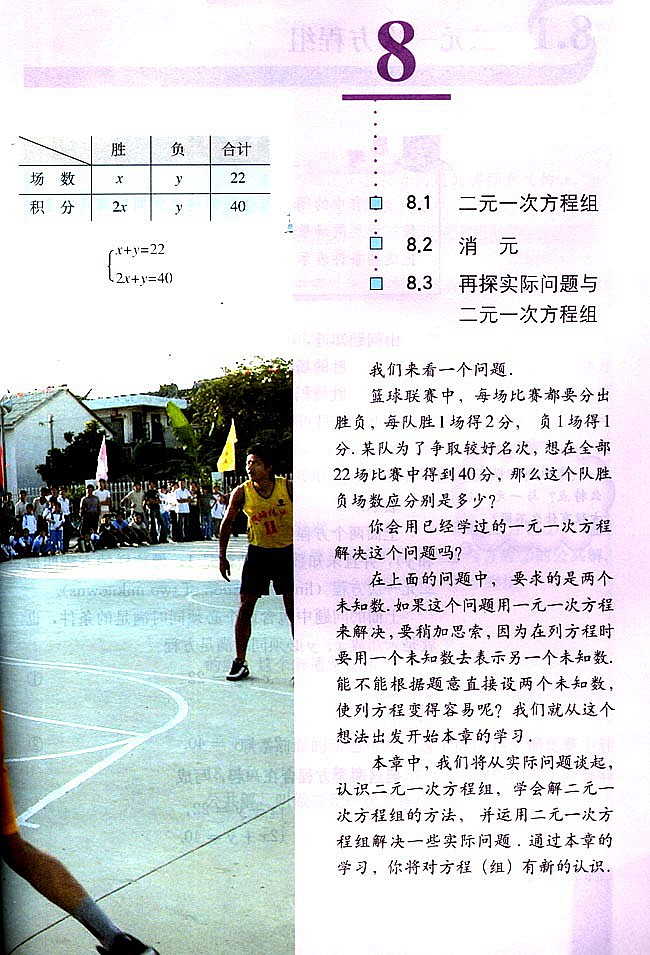 8
胜 负 合计
场 数 x y 22
积 分 2x y 40
x+y=22
2x+y=40
8.1 二元一次方程组
8.2 消 元
8.3 再探实际问题与
二元一次方程组
我们来看一个问题.
篮球联赛中，每场比赛都要分出
胜负，每队胜1场得2分， 负1场得1
分.某队为了争取较好名次，想在全部
22场比赛中得到40分，那么这个队胜
负场数应分别是多少?
你会用已经学过的一元一次方程
解决这个问题吗?
在上面的问题中， 要求的是两个
未知数.如果这个问题用一元一次方程
来解决，要稍加思索，因为在列方程时
要用一个未知数去表示另一个未知数.
能不能根据题意直接设两个未知数，
使列方程变得容易呢? 我们就从这个
想法出发开始本章的学习.
本章中，我们将从实际问题谈起，
认识二元一次方程组，学会解二元一
次方程组的方法， 并运用二元一次方
程组解决一些实际问题.通过本章的
学习，你将对方程（组）有新的认识.
11